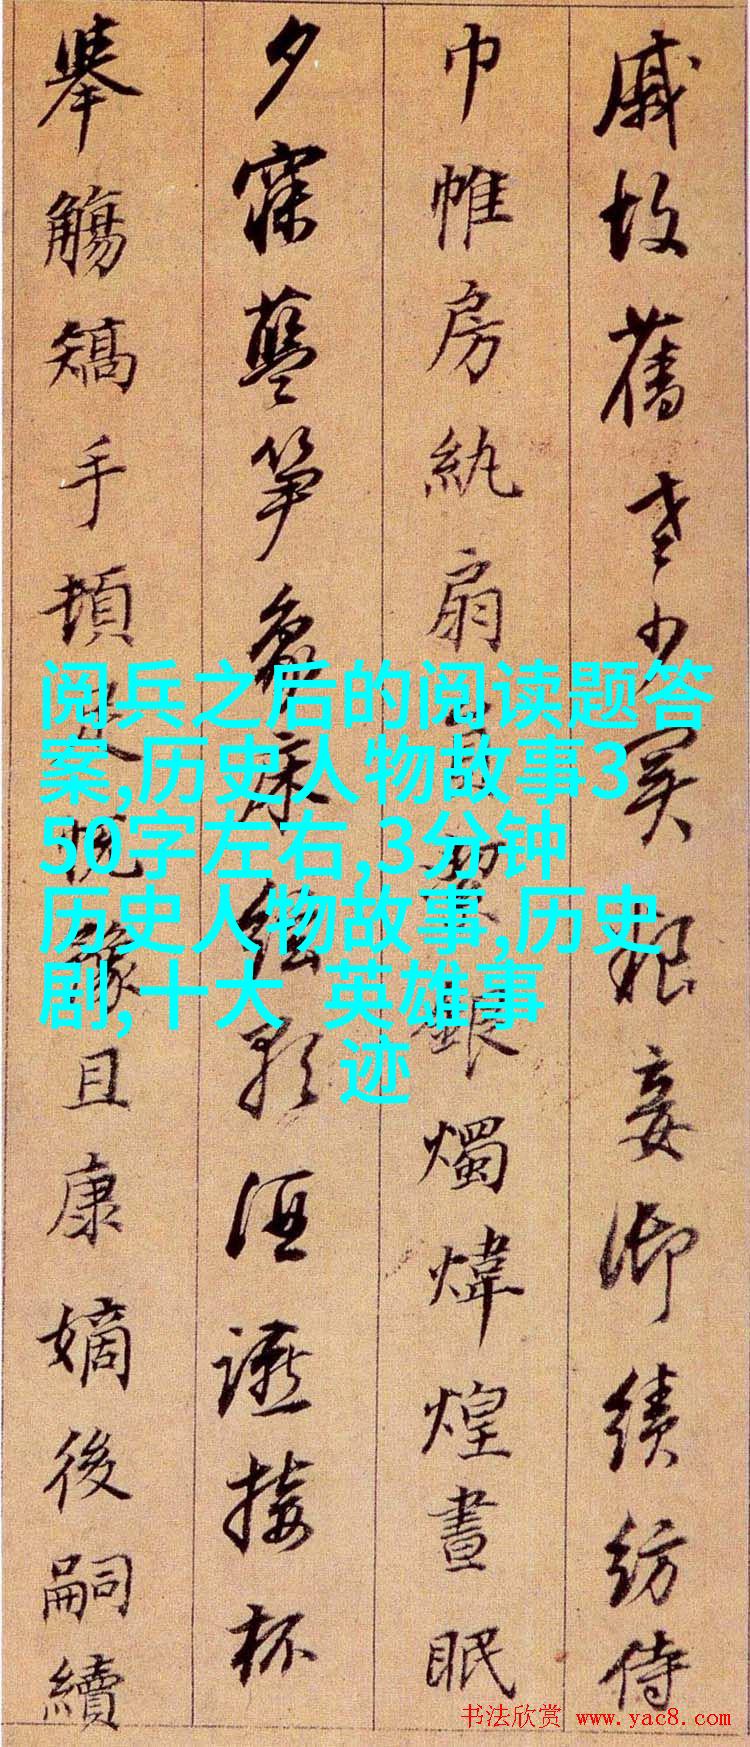 戚故舊老少異粮妾御績紡侍
巾帷房紈扇銀燭煒煌晝眠
夕寐藍筍象床絃歌酒讌接杯
舉觴矯手頓悅豫且康嫡後嗣續
阅兵之后的阅读题答
案,历史人物故事3
50字左右,3分钟
历史人物故事,历史
剧,十大 英雄事
迹
书法欣赏 www.yac8.com